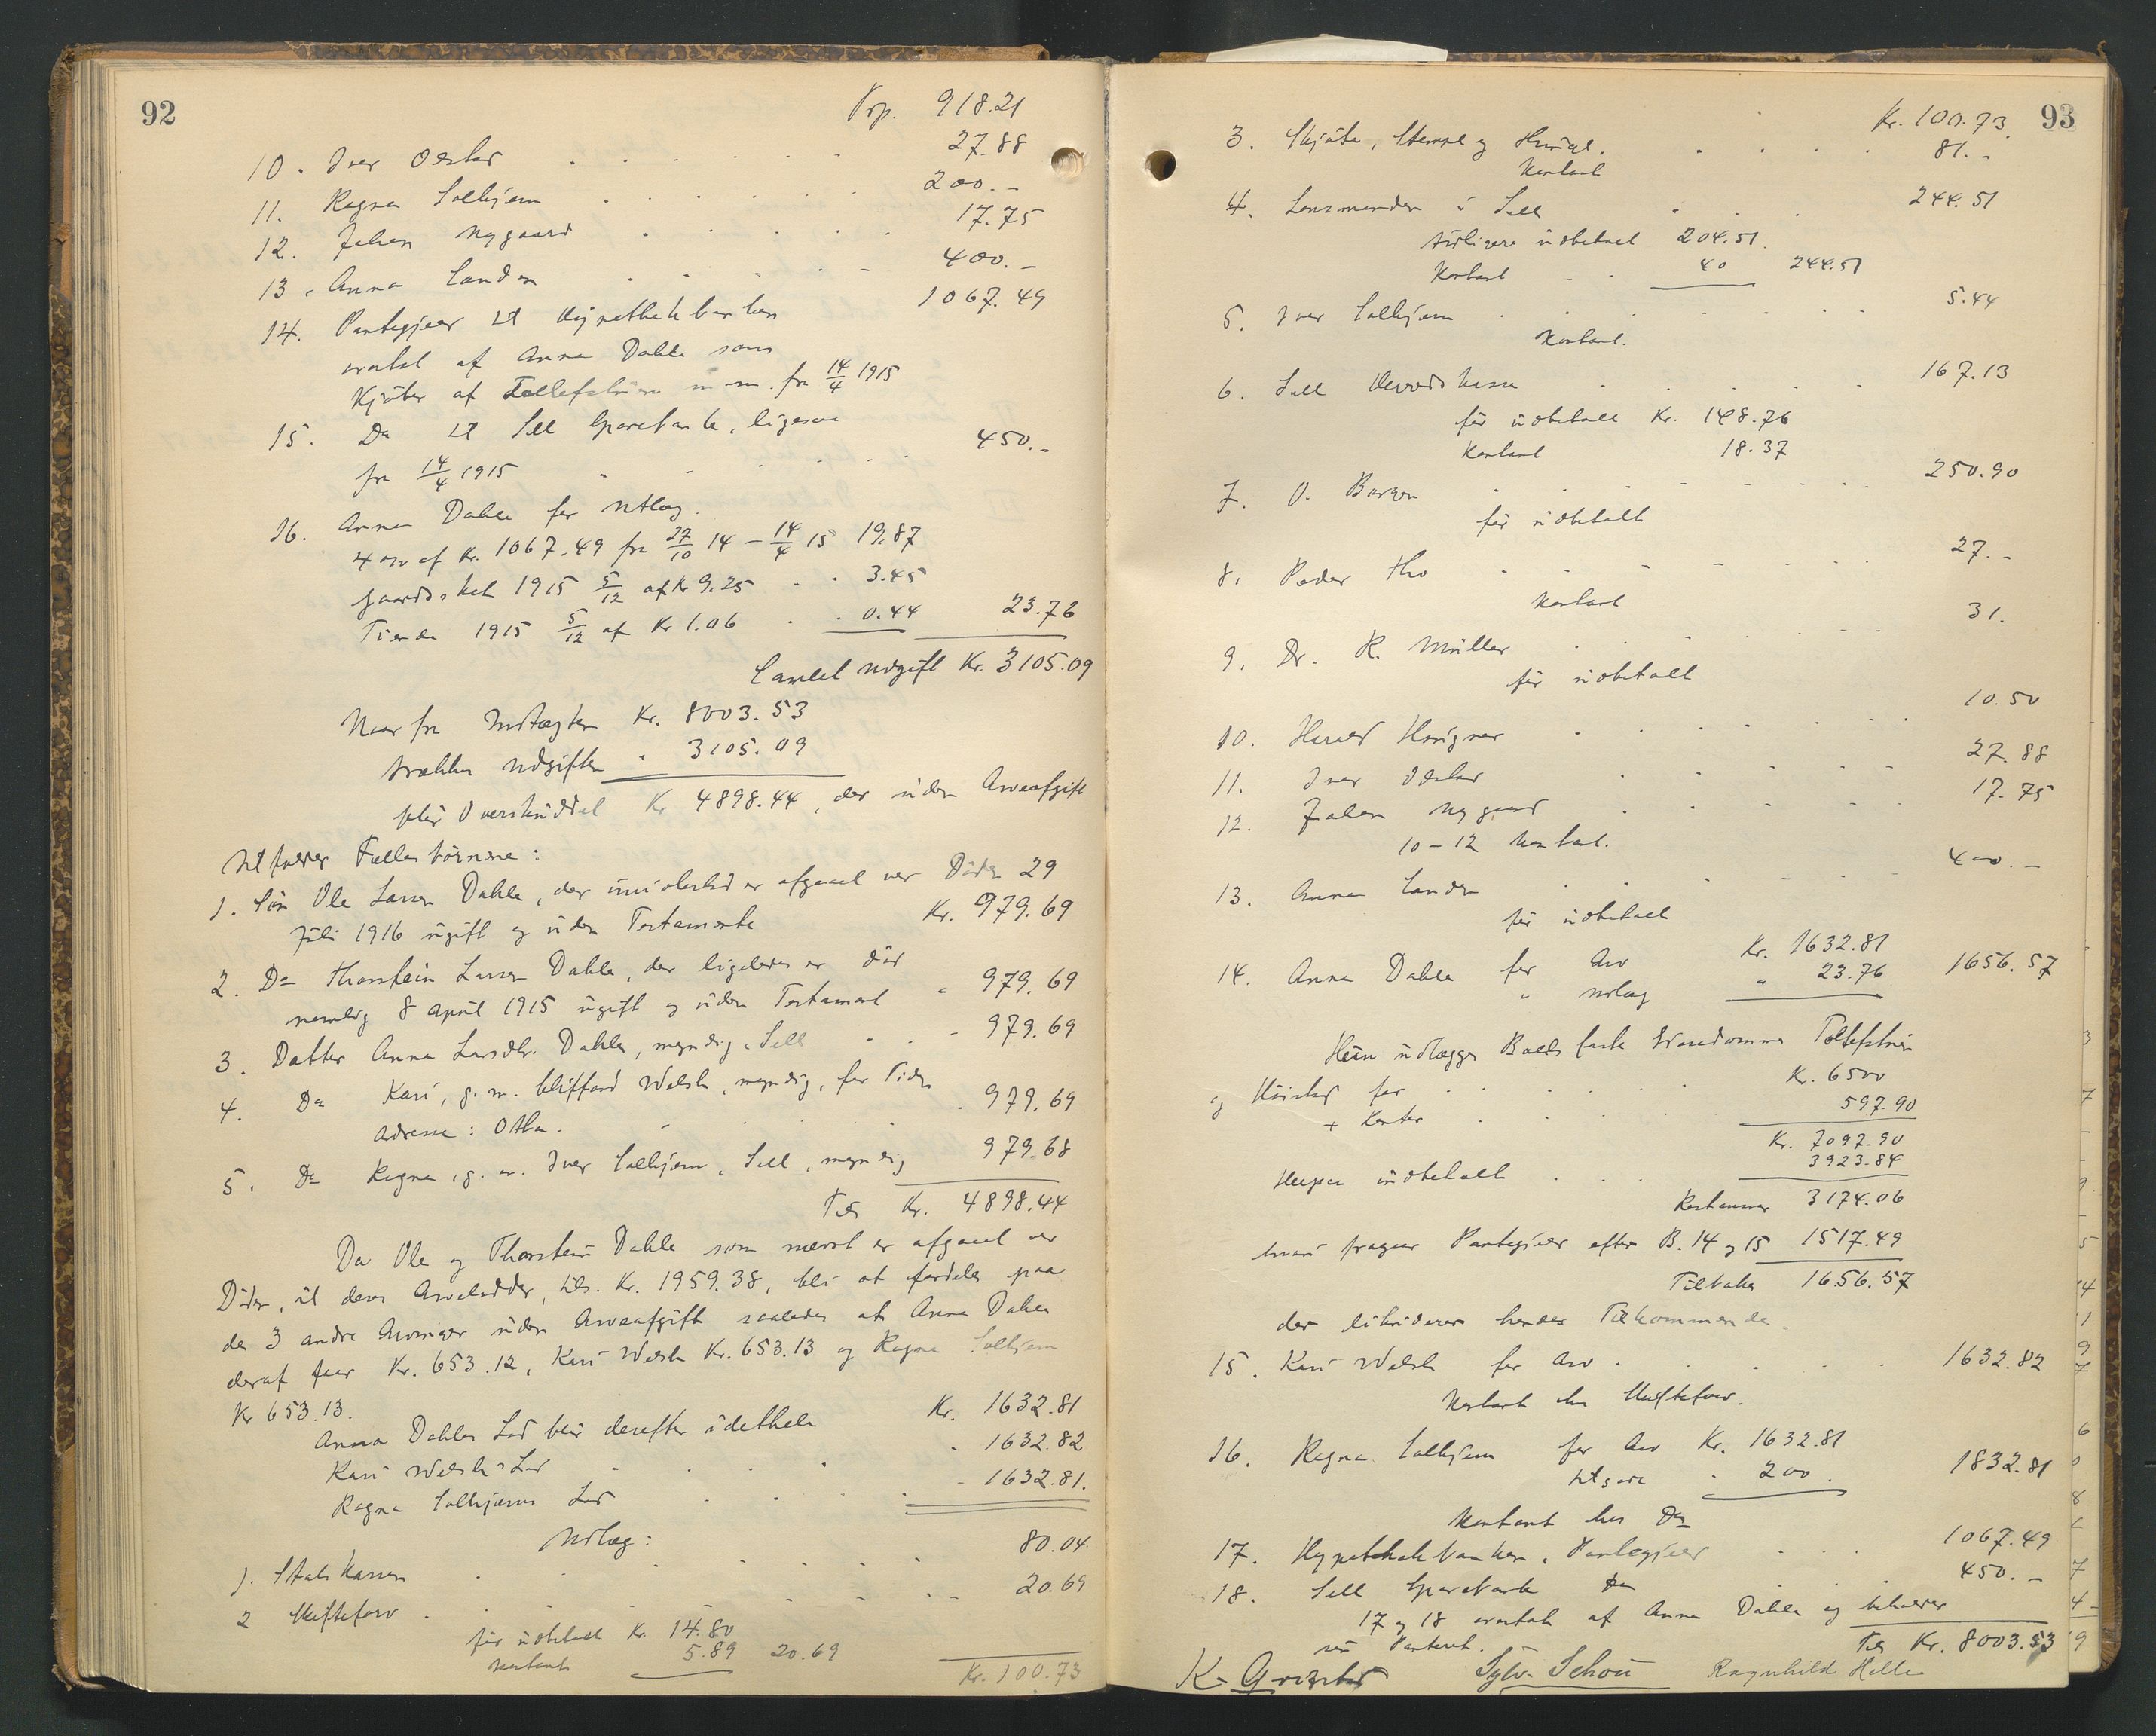 92
Trp. 918.21
10. Iver Oestad . . . . . 27.88
11. Ragna Solhjem . . . . . 200.-
12. Johan Nygaard . . . . . 17.75
13. Anna Landen . . . . . 400.-
14. Pantegjæld til Hypothekbanken 1067.49
overtat af Anna Dahle som
Kjøber af Tollefstuen m.m. fra 14/4 1915
15. Do til Sell Sparebank, ligesaa
fra 14/4 1915 . . . . . 450.-
16. Anna Dahle for Utlæg.
4 % af Kr. 1067.49 fra 27/10 14 - 14/4 15 19.87
Gaardskat 1915 5/12 af Kr 9.25 . . 3.45
Tiende 1915 5/12 af Kr 1.06 . . 0.44 23.76
Samlet Udgift Kr. 3105.09
Naar fra Indtægten Kr. 8003.53
trækkes Udgiften " 3105.09
blir Overskuddet Kr 4898.44, der uden Arveafgift
tilfalder Fællesbørnene:
1. Søn Ole Larsen Dahle, der imidlertid er afgaaet ved Døden 29
Juli 1916 ugift og uden Testamente Kr. 979.69
2. Do Thorstein Larsen Dahle, der ligeledes er død
nemlig 8 April 1915 ugift og uden Testament " 979.69
3. Datter Anna Larsdtr. Dahle, myndig, Sell . . - 979.69
4. Do Kari, g. m. Clifford Welsh, myndig, for Tiden
Adresse: Otta. . . . . 979.69
5. Do Ragna, g. m. Iver Solhjem, Sell, myndig 979.68
Tils Kr. 4898.44
Da Ole og Thorstein Dahle som nævnt er afgaaet ved
Døden, vil deres Arvelodder, tils. Kr. 1959.38, bli at fordele paa
de 3 andre Arvinger uden Arveafgift saaledes at Anna Dahle
deraf faar Kr. 653.12, Kari Welsh Kr. 653.13 og Ragna Solhjem
Kr 653.13.
Anna Dahles Lod blir derefter idethele Kr. 1632.81
Kari Welshs Lod . . . " 1632.82
Ragna Solhjems Lod . . . - 1632.81.
Udlæg:
1. Statskassen . . . . . 80.04
2 Skifteforv . . . . . 20.69
før udbetalt Kr. 14.80
kontant 5.89 20.69
Kr. 100.73
93
Kr. 100.73
3. Skjøte, Stempel og . . . . 81.-
Kontant
4. Lensmanden i Sell . . . 244.51
tidligere udbetalt 204.51.
Kontant . . 40 244.51
5. Iver Solhjem . . . . . 5.44
Kontant.
6. Sell Herredskasse . . . . . 167.13
før udbetalt Kr. 148.76
Kontant 18.37
7. O. Barson . . . . . 250.90
før udbetalt
8. Peder Tho . . . . . 27.-
Kontant
9. Dr. K. Müller . . . . . 31.
før udbetalt
10. Harald . . . . . 10.50
11. Iver Oestad . . . . . 27.88
12. Johan Nygaard . . . . . 17.75
10-12 Kontant.
13. Anna Landen . . . . . 400.-
før udbetalt
14. Anna Dahle for Arv Kr. 1632.81
" Udlæg " 23.76 1656.57
Hun udlægges Boets faste Eiendomme Tollefstuen
og for . . . . . Kr. 6500
+ Renter . . 597.90
Kr. 7097.90
Herpaa indbetalt . . . 3923.84
Restancer 3174.06
hvori fragaar Pantegjæld efter B. 14 og 15 1517.49
Tilbake 1656.57
der likviderer hendes Tilkommende.
15. Kari Welsh for Arv . . . . . 1632.82
Kontant hos Skifteforv.
16. Ragna Solhjem for Arv Kr. 1632.81
tilgode " 200. 1832.81
Kontant hos Do
17. Hypothekbanken, Pantegjæld . . . 1067.49
18. Sell Sparebank Do . . 450.-
17 og 18 overtat af Anna Dahle og beholder
sin Panteret. Tils Kr. 8003.53
Sylv. Schou Ragnhild Helle